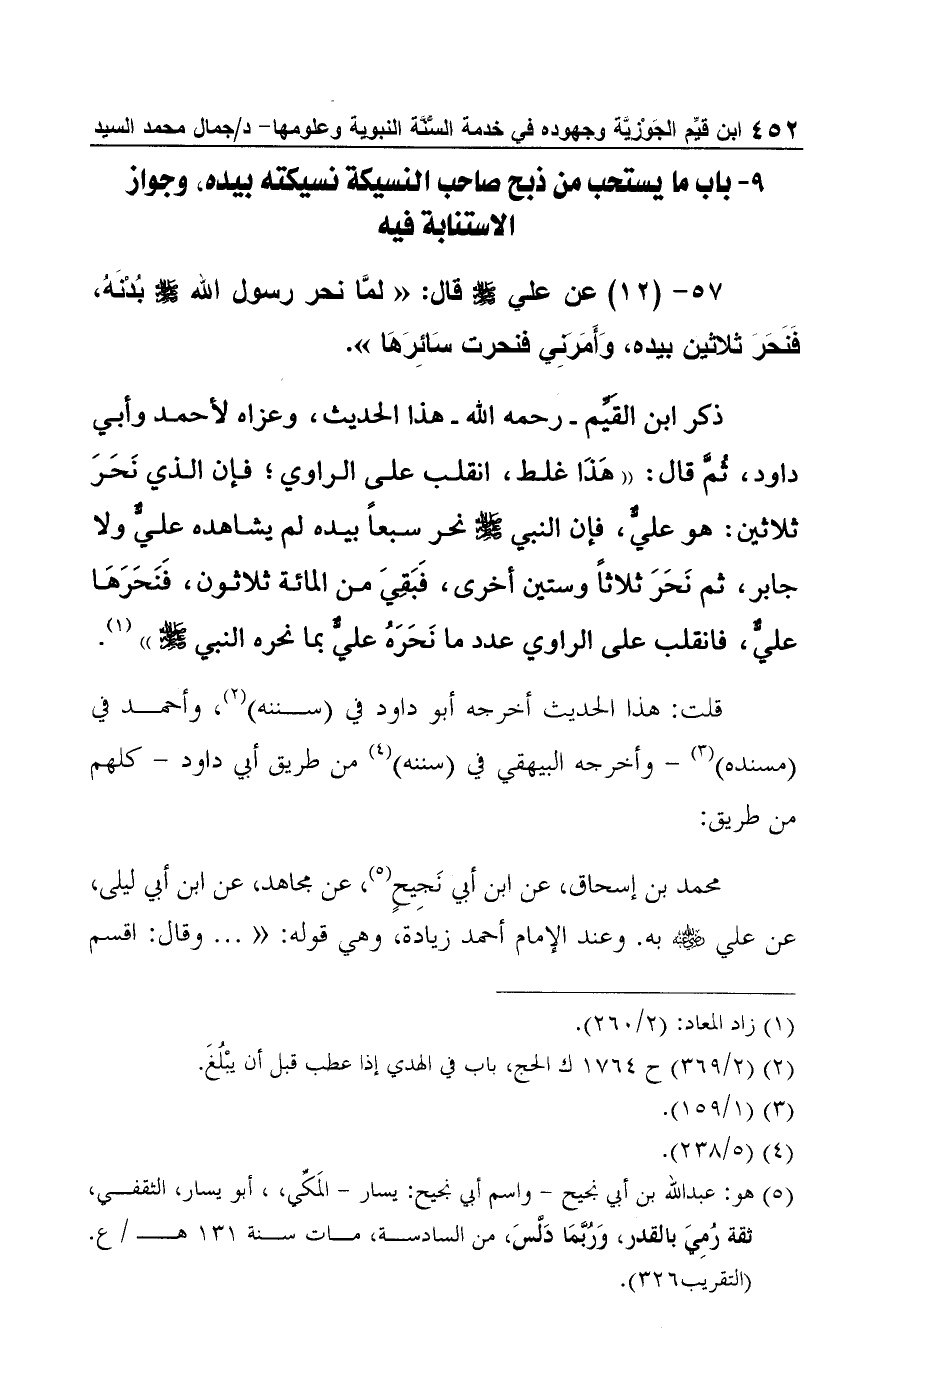 ٤٥٢ ابن قيِّم الجَوْزِيَّة وجهوده في خدمة السُّنَّة النبوية وعلومها- د/جمال محمد السيد
٩- باب ما يستحب من ذبح صاحب النسيكة نسيكته بيده، وجواز
الاستنابة فيه
٥٧- (١٢) عن علي ﷺ قال: « لمَّا نحر رسول الله ﷺ بُدْنَهُ،
فَنَحَرَ ثلاثين بيده، وَأَمَرَني فنحرت سَائِرَهَا ».
ذكر ابن القيِّم ـ رحمه الله ـ هذا الحديث، وعزاه لأحمد وأبي
داود، ثُمَّ قال: « هَذَا غلط، انقلب على الراوي؛ فإن الذي نَحَرَ
ثلاثين: هو عليٌّ، فإن النبي ﷺ نحر سبعاً بيده لم يشاهده عليٌّ ولا
جابر، ثم نَحَرَ ثلاثاً وستين أخرى، فَبَقِيَ من المائة ثلاثون، فَنَحَرَهَا
عليٌّ، فانقلب على الراوي عدد ما نَحَرَهُ عليٌّ بما نحره النبي ﷺ »(١).
قلت: هذا الحديث أخرجه أبو داود في (سـننه)(٢)، وأحمـد في
(مسنده)(٣) – وأخرجه البيهقي في (سننه)(٤) من طريق أبي داود – كلهم
من طريق:
محمد بن إسحاق، عن ابن أبي نَجِيحٍ(٥)، عن مجاهد، عن ابن أبي ليلى،
عن علي رضي الله عنه به. وعند الإمام أحمد زيادة، وهي قوله: « ... وقال: اقسم
(١) زاد المعاد: (٢٦٠/٢).
(٢) (٣٦٩/٢) ح ١٧٦٤ ك الحج، باب في الهدي إذا عطب قبل أن يَبْلُغَ.
(٣) (١٥٩/١).
(٤) (٢٣٨/٥).
(٥) هو: عبدالله بن أبي نجيح – واسم أبي نجيح: يسار – المَكِّي، ، أبو يسار، الثقفـي،
ثقة رُمِيَ بالقدر، وَرُبَّمَا دَلَّسَ، من السادسـة، مـات سـنة ١٣١ هـــ / ع.
(التقريب٣٢٦).